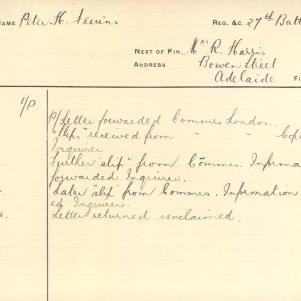 NAME Peter H. REG. &C. 27th Batt
NEXT OF KIN. Mrs R. Harris
ADDRESS Bowen Street
Adelaide
1/P
P/Letter forwarded Commrs London.
"slip" received from " "
Inquirer
Further "slip" from Commrs. Informa
forwarded Inquirer.
Later "slip" from Commrs. Information
ed Inquirer.
Letter returned unclaimed.